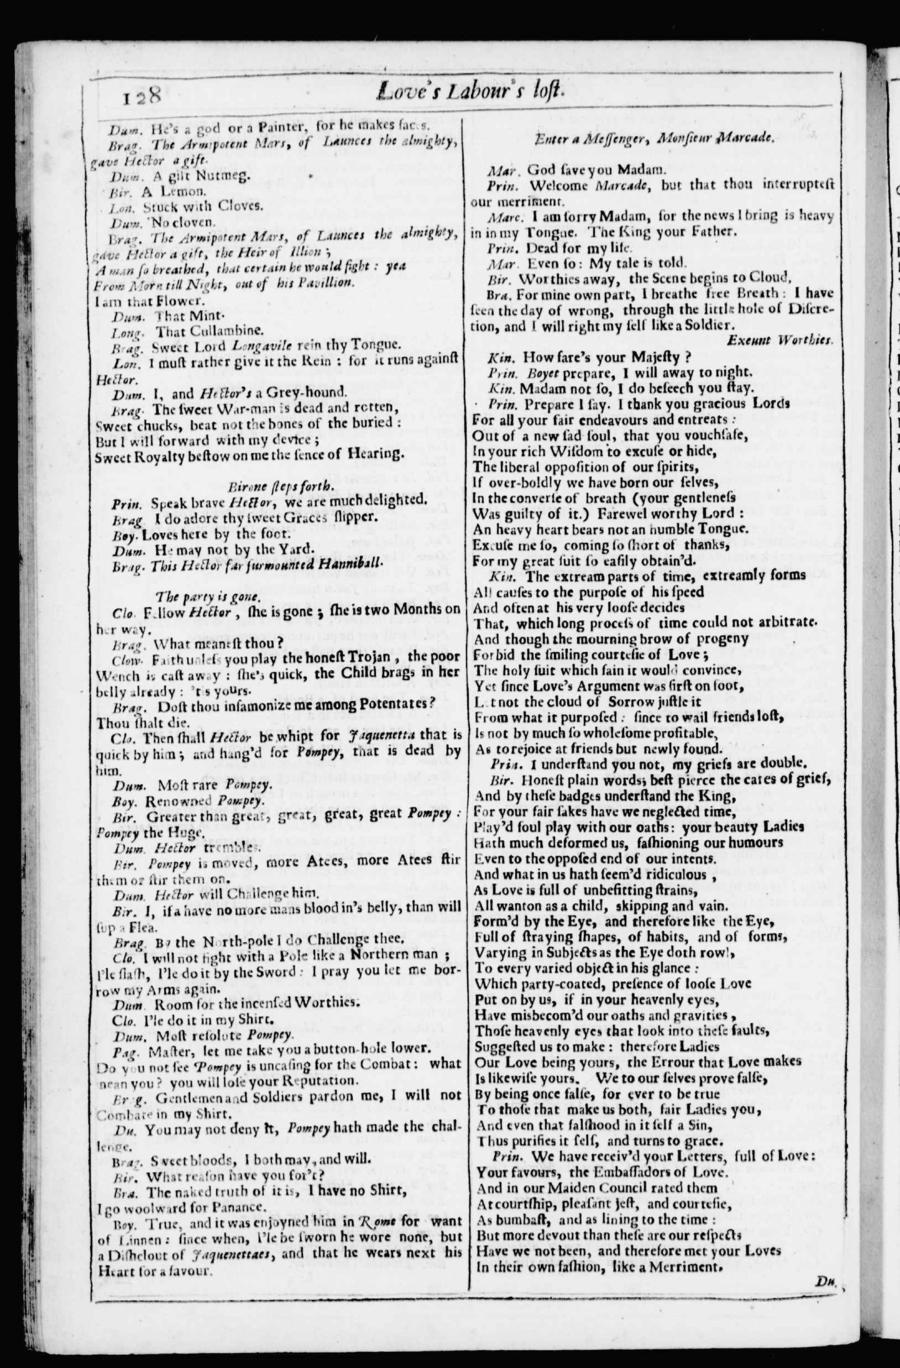 128
Love's Labour's lost.
Dum. He's a god or a Painter, for he makes faces.
Brag. The Armipotent Mars, of Launces the almighty,
gave Hector a gift.
Dum. A gilt Nutmeg.
Bir. A Lemon.
Lon. Stuck with Cloves.
Dum. No cloven.
Brag. The Armipotent Mars, of Launces the almighty,
gave Hector a gift, the Heir of Illion;
A man so breathed, that certain he would fight: yea
From Morn till Night, out of his Pavillion.
I am that Flower.
Dum. That Mint.
Long. That Cullambine.
Brag. Sweet Lord Longavile rein thy Tongue.
Lon. I must rather give it the Rein: for it runs against
Hector.
Dum. I, and Hector's a Grey-hound.
Brag. The sweet War-man is dead and rotten,
Sweet chucks, beat not the bones of the buried:
But I will forward with my device;
Sweet Royalty bestow on me the sence of Hearing.
Birone steps forth.
Prin. Speak brave Hector, we are much delighted.
Brag. I do adore thy sweet Graces slipper.
Boy. Loves here by the foot.
Dum. He may not by the Yard.
Brag. This Hector far surmounted Hanniball.
The party is gone.
Clo. Fellow Hector, she is gone; she is two Months on
her way.
Brag. What meanest thou?
Clow. Faith unless you play the honest Trojan, the poor
Wench is cast away: she's quick, the Child brags in her
belly already: 'tis yours.
Brag. Dost thou infamonize me among Potentates?
Thou shalt die.
Clo. Then shall Hector be whipt for Jaquenetta that is
quick by him; and hang'd for Pompey, that is dead by
him.
Dum. Most rare Pompey.
Boy. Renowned Pompey.
Bir. Greater than great, great, great, great Pompey:
Pompey the Huge.
Dum. Hector trembles.
Bir. Pompey is moved, more Atees, more Atees stir
them or stir them on.
Dum. Hector will Challenge him.
Bir. I, if a have no more mans blood in's belly, than will
sup a Flea.
Brag. By the North-pole I do Challenge thee.
Clo. I will not fight with a Pole like a Northern man;
I'le slash, I'le do it by the Sword: I pray you let me bor-
row my Arms again.
Dum. Room for the incensed Worthies.
Clo. I'le do it in my Shirt.
Dum. Most resolute Pompey.
Pag. Master, let me take you a button-hole lower.
Do you not see Pompey is uncasing for the Combat: what
mean you? you will lose your Reputation.
Brag. Gentlemen and Soldiers pardon me, I will not
Combate in my Shirt.
Du. You may not deny it, Pompey hath made the chal-
lenge.
Brag. Sweet bloods, I both may, and will.
Bir. What reason have you for't?
Bra. The naked truth of it is, I have no Shirt,
I go woolward for Panance.
Boy. True, and it was enjoyned him in Rome for want
of Linnen: since when, I'le be sworn he wore none, but
a Dishclout of Jaquenettaes, and that he wears next his
Heart for a favour.
Enter a Messenger, Monsieur Marcade.
Mar. God save you Madam.
Prin. Welcome Marcade, but that thou interruptest
our merriment.
Marc. I am sorry Madam, for the news I bring is heavy
in in my Tongue. The King your Father.
Prin. Dead for my life.
Mar. Even so: My tale is told.
Bir. Worthies away, the Scene begins to Cloud.
Bra. For mine own part, I breathe free Breath: I have
seen the day of wrong, through the little hole of Discre-
tion, and I will right my self like a Soldier.
Exeunt Worthies.
Kin. How fare's your Majesty?
Prin. Boyet prepare, I will away to night.
Kin. Madam not so, I do beseech you stay.
Prin. Prepare I say. I thank you gracious Lords
For all your fair endeavours and entreats:
Out of a new sad soul, that you vouchsafe,
In your rich Wisdom to excuse or hide,
The liberal opposition of our spirits,
If over-boldly we have born our selves,
In the converse of breath (your gentleness
Was guilty of it.) Farewel worthy Lord:
An heavy heart bears not an humble Tongue.
Excuse me so, coming so short of thanks,
For my great suit so easily obtain'd.
Kin. The extream parts of time, extreamly forms
All causes to the purpose of his speed
And often at his very loose decides
That, which long process of time could not arbitrate.
And though the mourning brow of progeny
Forbid the smiling courtesie of Love;
The holy suit which fain it would convince,
Yet since Love's Argument was first on foot,
Let not the cloud of Sorrow justle it
From what it purposed: since to wail friends lost,
Is not by much so wholesome profitable,
As to rejoice at friends but newly found.
Prin. I understand you not, my griefs are double.
Bir. Honest plain words, best pierce the cares of grief,
And by these badges understand the King,
For your fair sakes have we neglected time,
Play'd foul play with our oaths: your beauty Ladies
Hath much deformed us, fashioning our humours
Even to the opposed end of our intents.
And what in us hath seem'd ridiculous,
As Love is full of unbefitting strains,
All wanton as a child, skipping and vain.
Form'd by the Eye, and therefore like the Eye,
Full of straying shapes, of habits, and of forms,
Varying in Subjects as the Eye doth rowl,
To every varied object in his glance:
Which party-coated, presence of loose Love
Put on by us, if in your heavenly eyes,
Have misbecom'd our oaths and gravities,
Those heavenly eyes that look into these faults,
Suggested us to make: therefore Ladies
Our Love being yours, the Errour that Love makes
Is likewise yours. We to our selves prove false,
By being once false, for ever to be true
To those that make us both, fair Ladies you,
And even that falshood in it self a Sin,
Thus purifies it self, and turns to grace.
Prin. We have receiv'd your Letters, full of Love:
Your favours, the Embassadors of Love.
And in our Maiden Council rated them
At courtship, pleasant jest, and courtesie,
As bumbast, and as lining to the time:
But more devout than these are our respects
Have we not been, and therefore met your Loves
In their own fashion, like a Merriment.
Du.